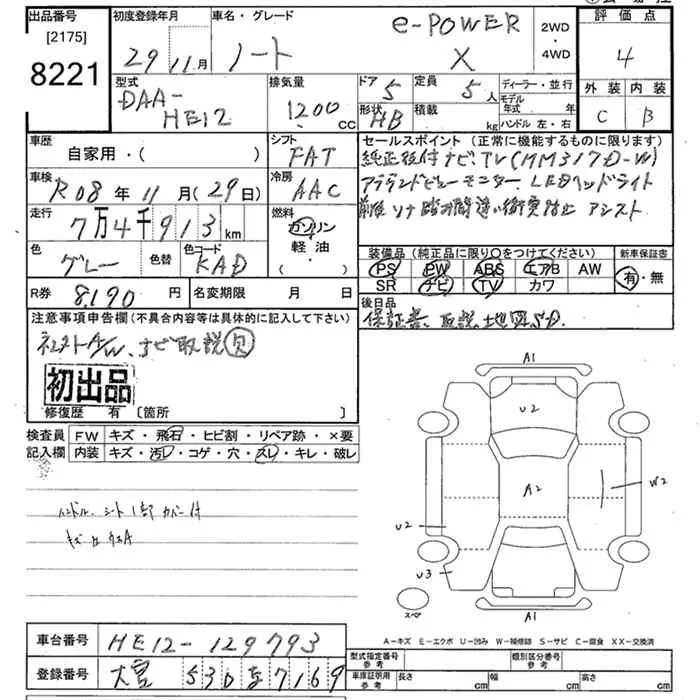 出品番号 初度登録年月 車名・グレード 評価点
[2175]
8221
29年11月 ノート e-POWER X 2WD・4WD 4
型式 排気量 ドア 5 定員 5人 ディーラー・並行 外装 内装
DAA-HE12 1200cc 形状 HB 積載 kg モデル年式 年 ハンドル 左・右 C B
車歴 シフト セールスポイント(正常に機能するものに限ります)
自家用・( ) FAT 純正後付ナビ、TV(MM317D-W)
車検 冷房 アラウンドビューモニター、LEDヘッドライト
R08年11月(29日) AAC 前後ソナ 踏み間違い衝突防止アシスト
走行 燃料
7万4千913km ガソリン
色 色替 色コード 軽・油
グレー KAD ・( )
装備品(純正品に限り○をつけてください) 新車保証書
PS PW ABS エアB AW 有・無
SR ナビ TV カワ
R券 8,190円 名変期限 月 日
後日品
保証書、取説、地図SD
注意事項申告欄(不具合内容等は具体的に記入して下さい)
A/W、ナビ取説欠
初出品
修復歴 有 [箇所 ]
検査員 FW キズ・飛石・ヒビ割・リペア跡・×要
記入欄 内装 キズ・汚レ・コゲ・穴・スレ・キレ・破レ
ハンドル、シート1部カバー付
A1
U2
A2 W2
U2
U3
スペア A1
A-キズ E-エクボ U-凹み W-補修跡 S-サビ C-腐食 XX-交換済
車台番号 HE12-129793
登録番号 大宮 530 7169
型式指定番号 参考 類別区分番号 参考
車庫証明用 参考 長さ cm 幅 cm 高さ cm